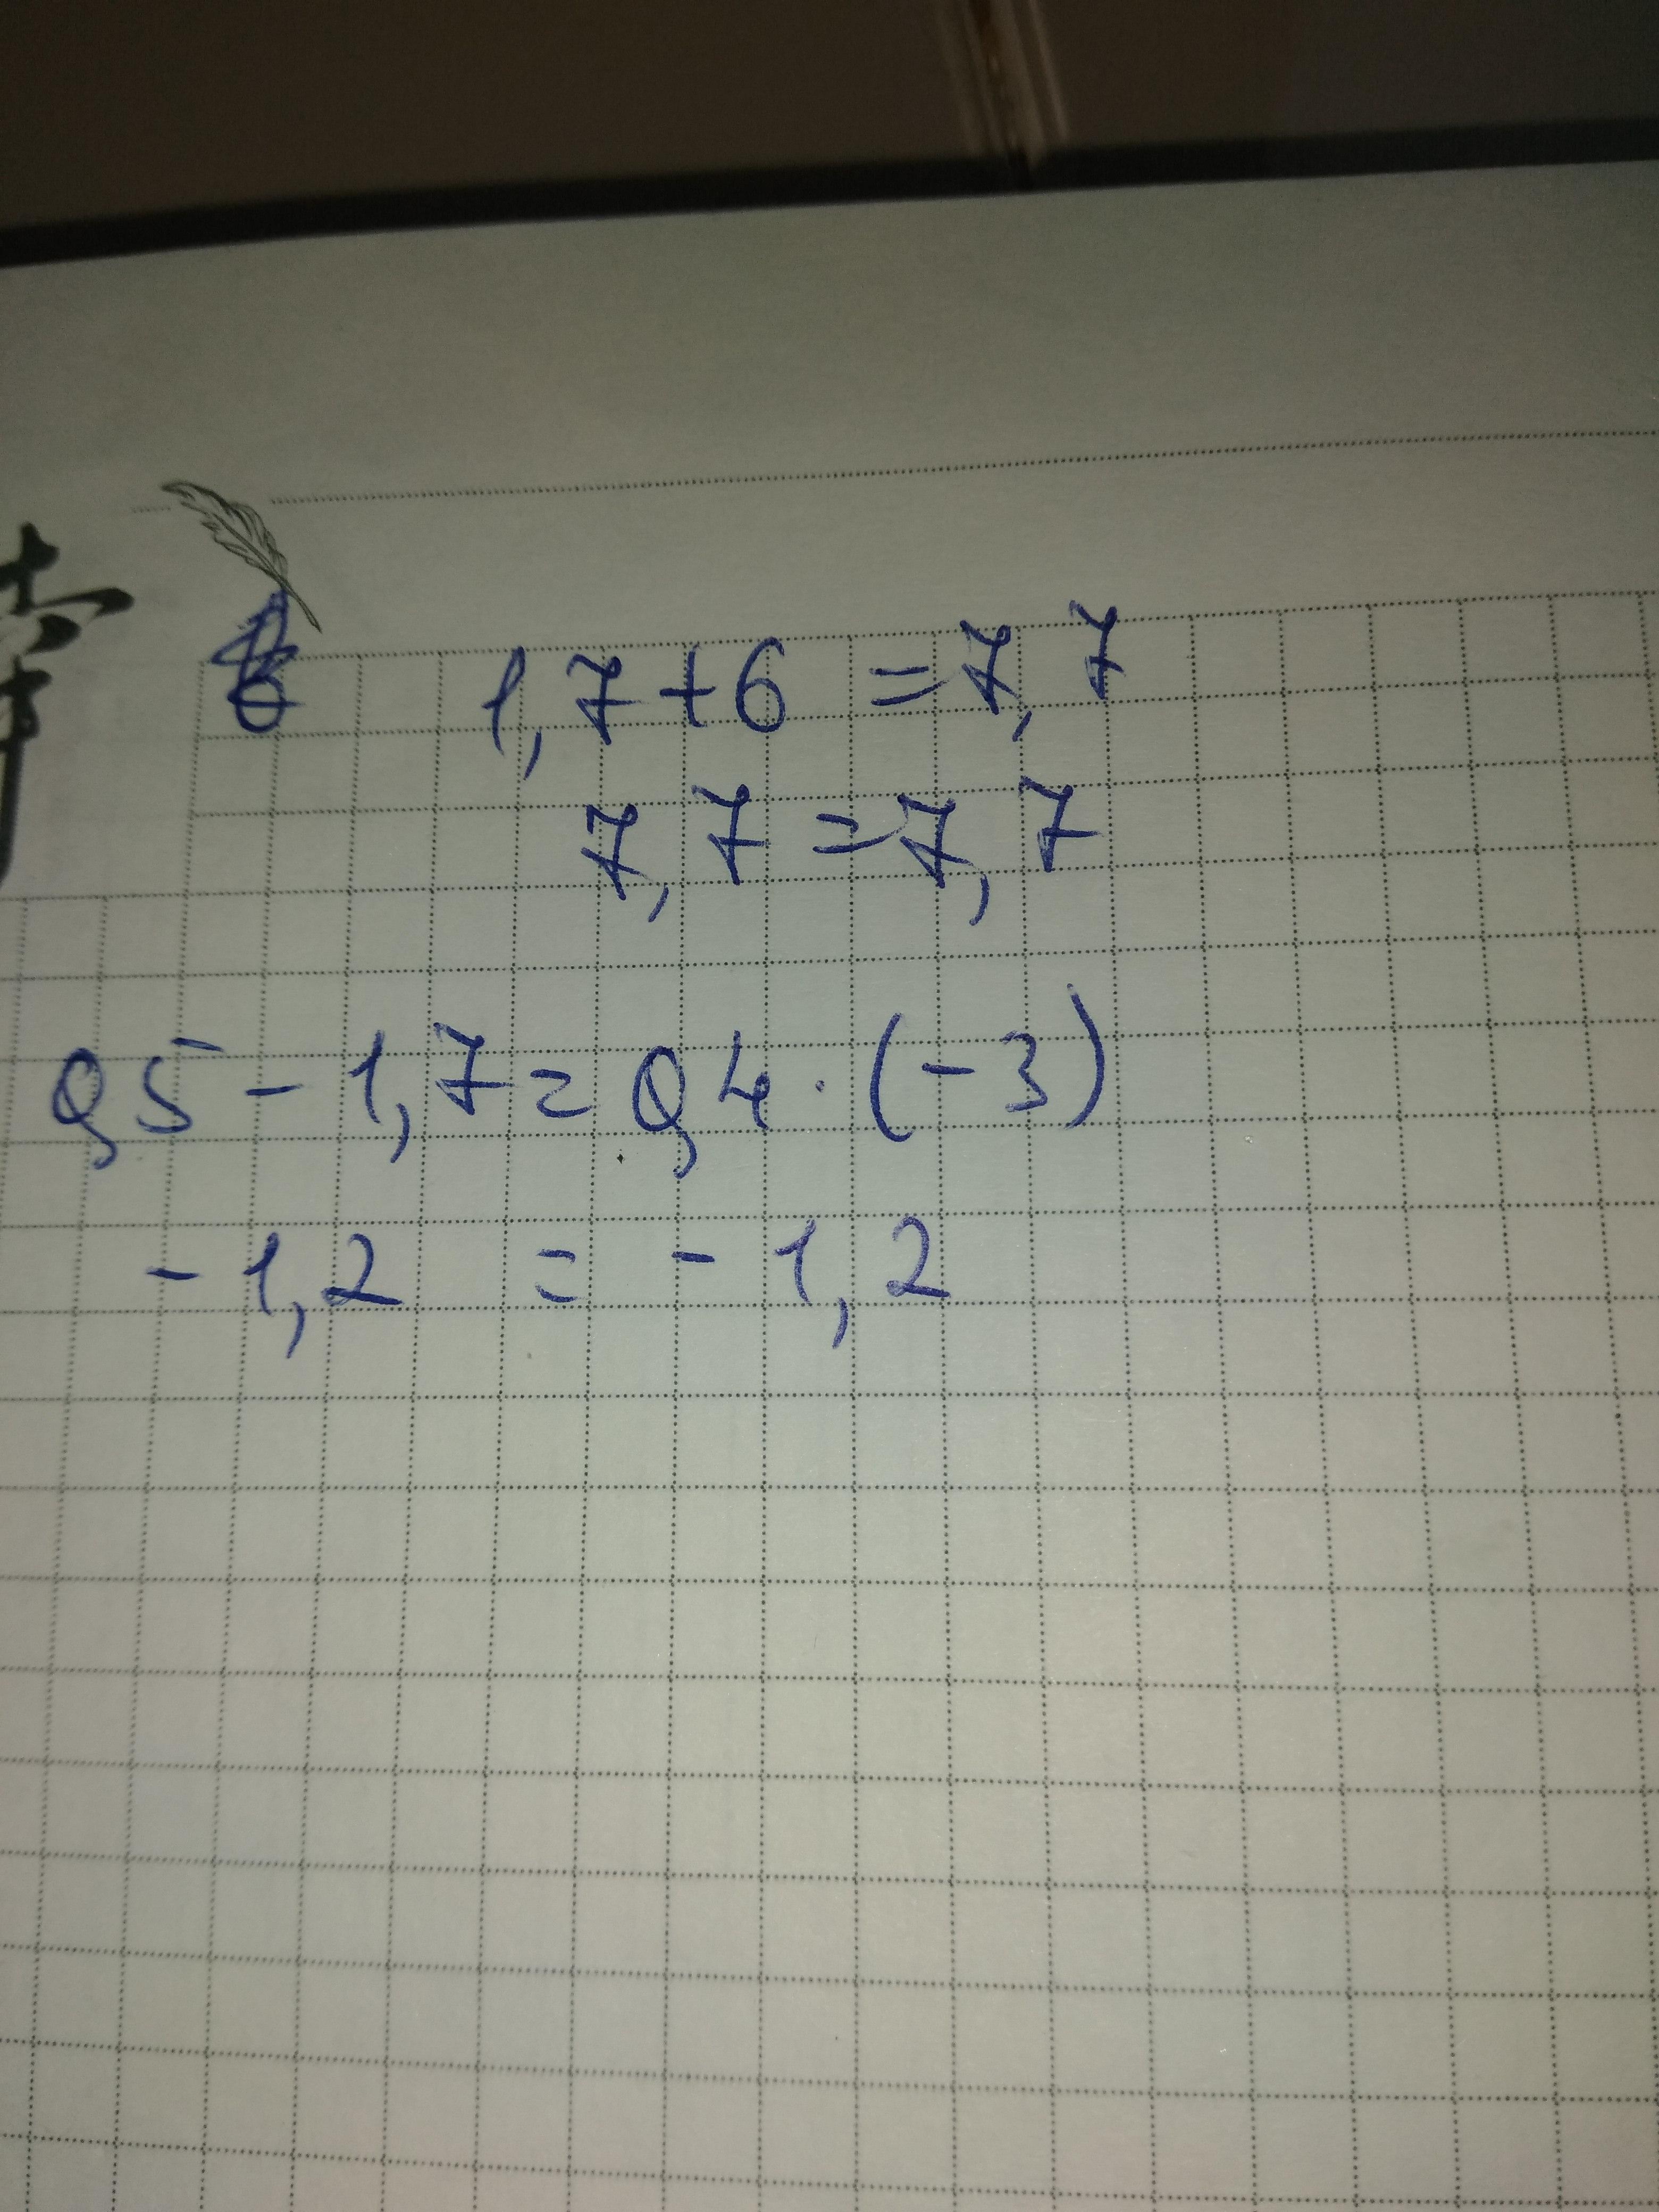 1,7+6=7,7
7,7=7,7
0,5-1,7=0,4·(-3)
-1,2=-1,2